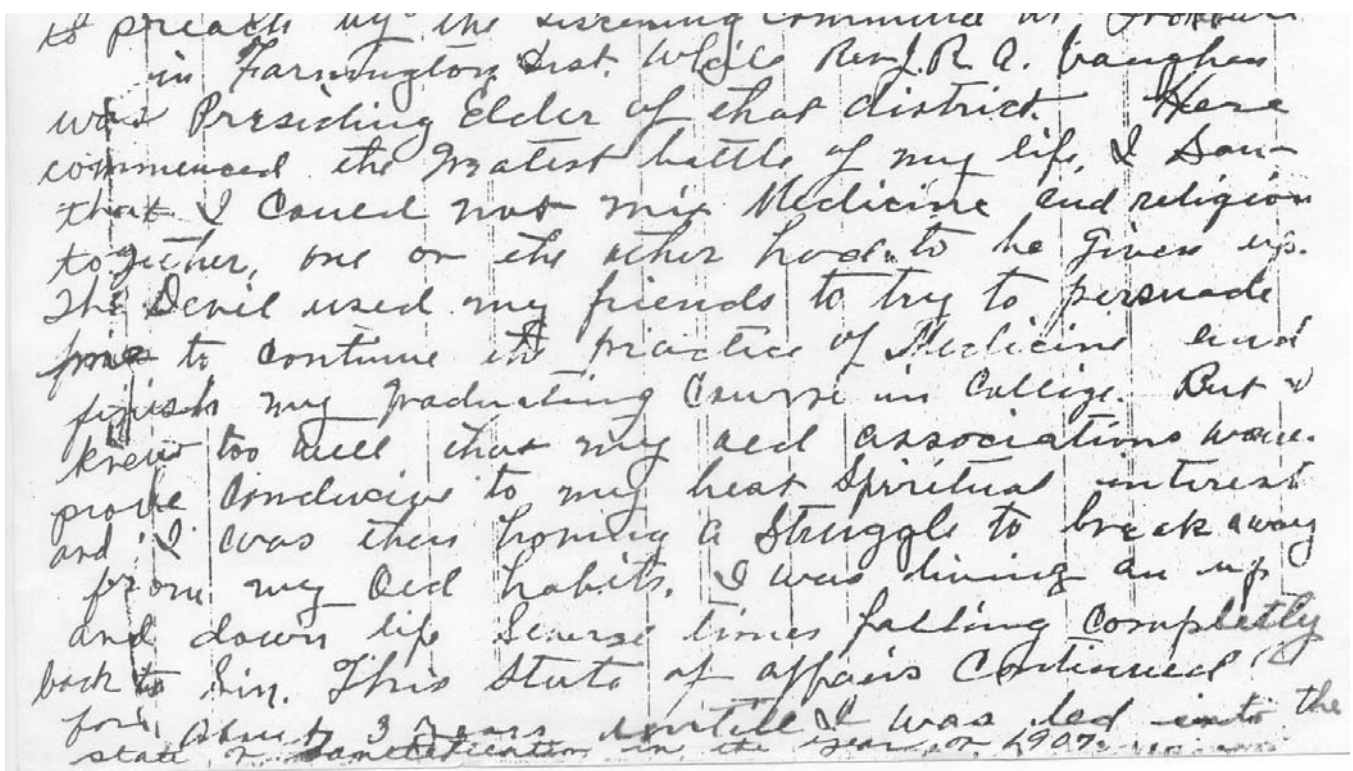 to preach by the Liscening Committee at
in Farmington Dist. While Rev J. R. A. Vaughan
was Presiding Elder of that district. Here
commenced the Gratest battle of my life, I Saw
that I Could not mix Medicine and religion
together, one or the other had to be Given up.
The Devil used my friends to try to persuade
me to Continue the practice of Medicine and
finish my Graduating Course in College. But I
knew too well that my old associations would
prove Conducive to my best Spiritual interest
and I was then having a Struggle to break away
from my Old habits. I was living an up
and down life Several times falling Completly
back to Sin. This State of affairs Continued
for About 3 Years untill I was led into the
state of Sanctification in the year of 1907